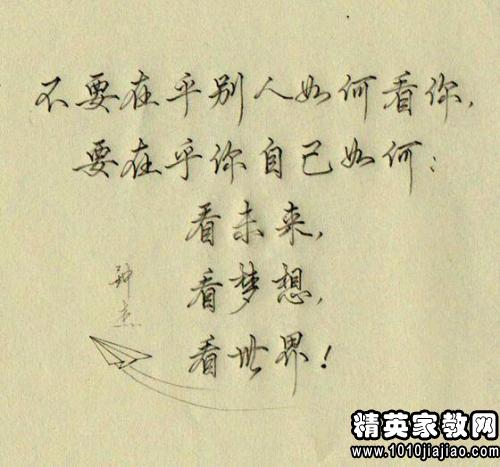 不要在乎别人如何看你,
要在乎你自己如何:
看未来,
看梦想,
看世界!
钟杰
精英家教网
www.1010jiajiao.com